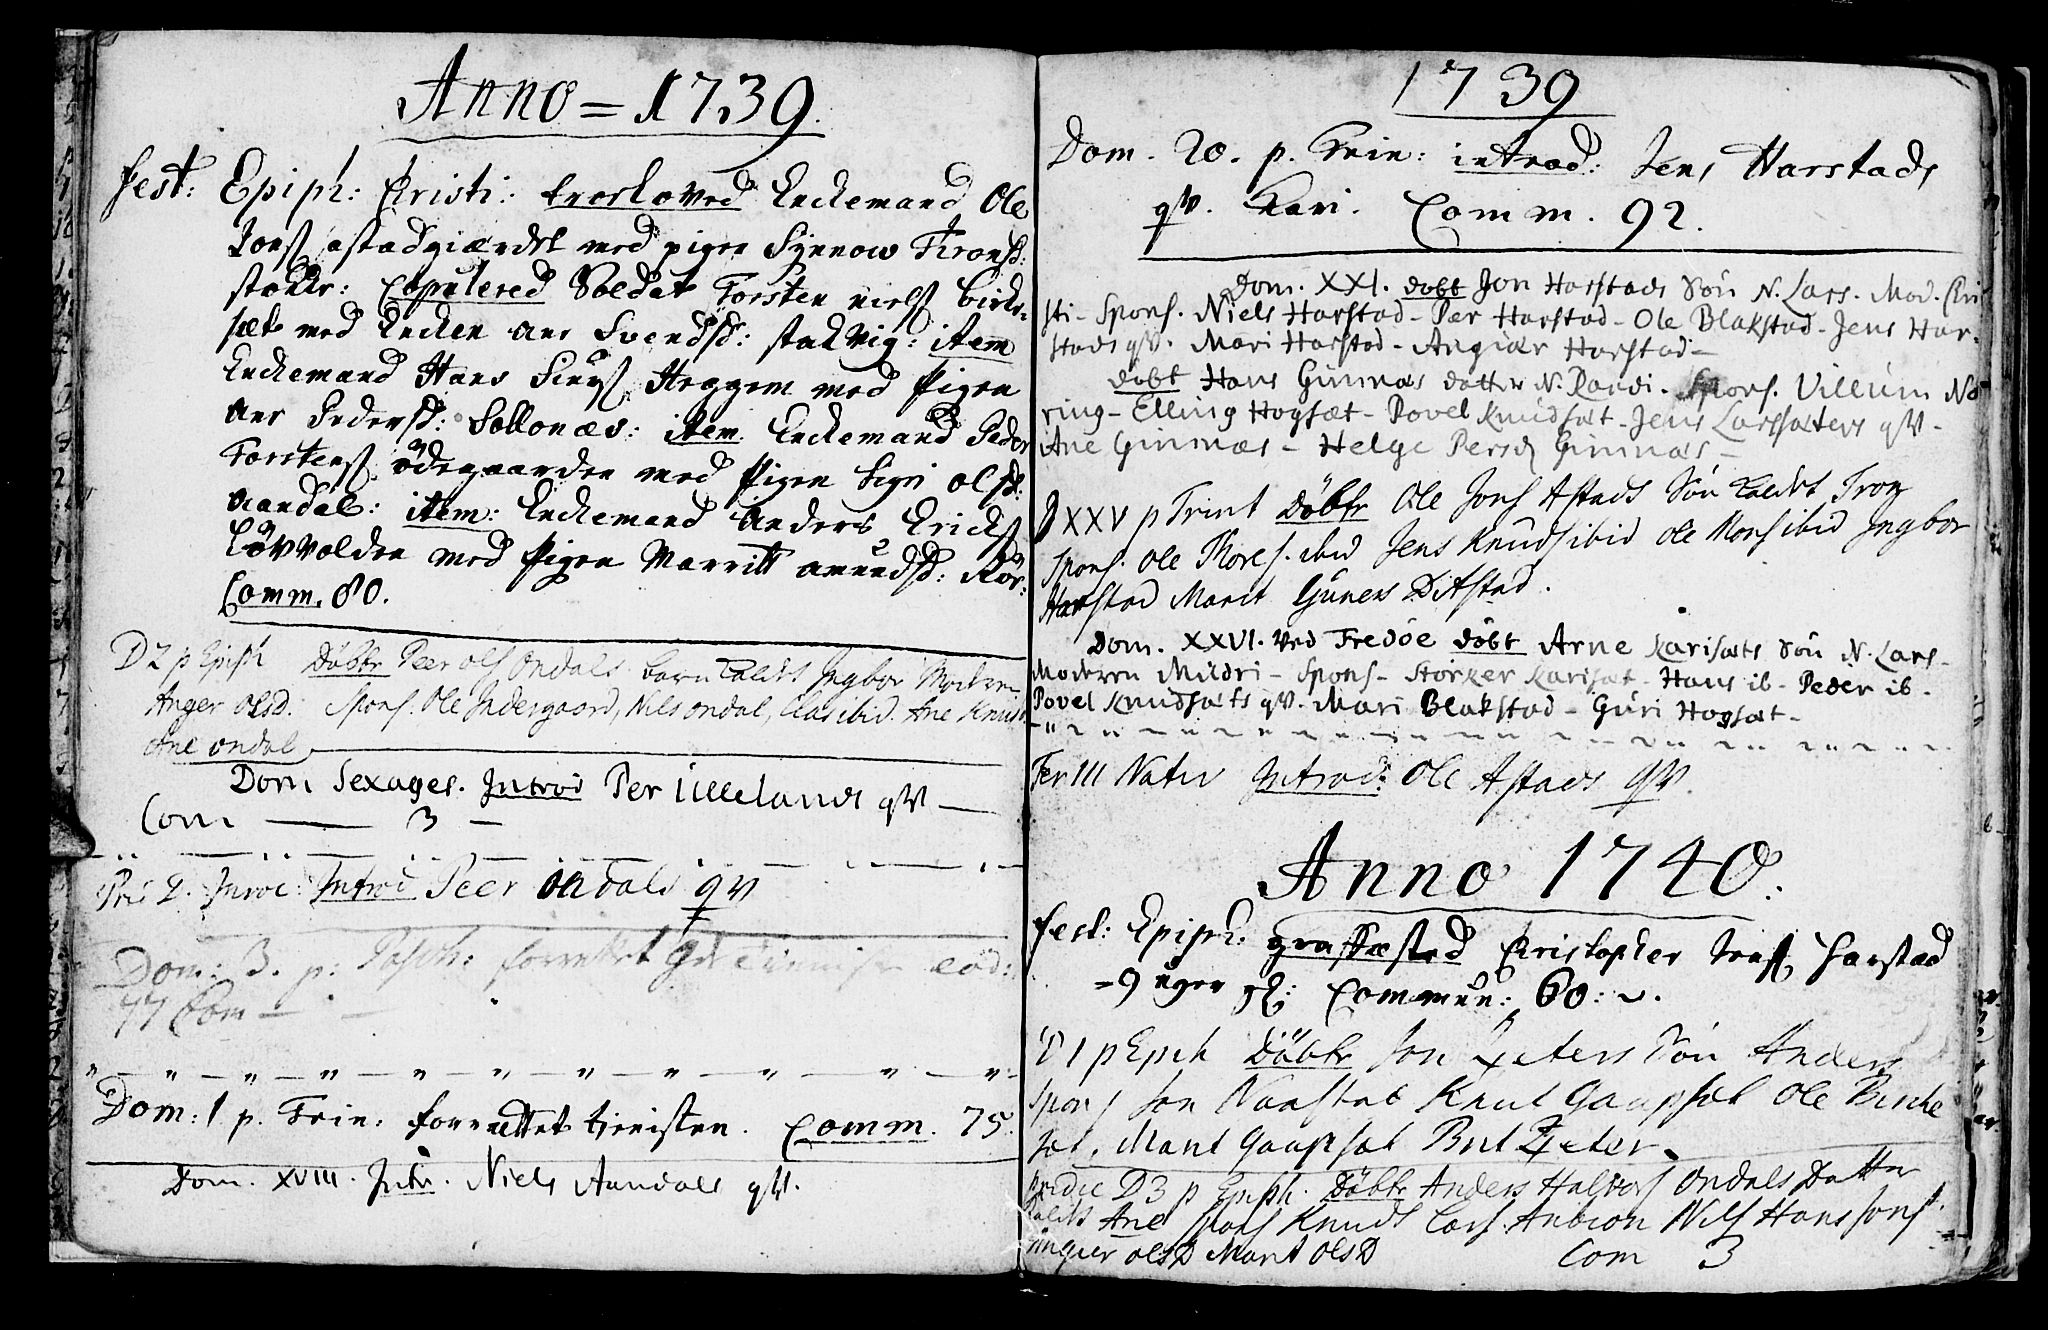 Anno = 1739.
fest: Epiph: Christi: troelowed Enckemand Ole
Jons astadgiærdet med pigen Synnow Trons:
Copulered Soldat Torsten niels birke-
sæt med Encken ane Svendsd: stadvig: item
Enckemand Hans Heggem med Pigen
ane Pedersd: Sollonæs: item Enckemand Peder
Torstens ödegaarden med Pigen Sigri olsd:
aandal: item: Enckemand Anders Ericks
Løvvolden med Pigen Marritt amundsd: Rør:
Comm. 80.
D 2 p Epiph Döbte Peer ols Ondals barn kaldt Ingbor Moderen
Anger olsd: Spons. Ole Indergaard, Nils ondal, ibid. Ane Knuds
Ane ondal
Dom Sexages. Introd Per Lillelands qv —
Com — 3 —
2. Introd Peer Ondals qv
Dom: 3. p: Pasch: forrettet eod:
77 Com —
Dom: 1 p. Trin: forrettet tienisten. Comm. 75.
Dom. XVIII. Intr. Niels Aandals qv.
1739
Dom. 20. p. Trin: introd: Jens Harstads
qv. Kari. Comm. 92.
Dom. XXI. dobt Jon Harstads Søn N. Lars. Mod. Chri
sti - Spons. Niels Harstad - Pær Harstad - Ole Blakstad - Jens Har-
stads qv. Mari Harstad - Angiær Harstad -
dobt Hans Ginnæs datter N. Randi. Spons. Villum Næ
ring - Elling Hogsæt - Povel Knudsæt - Jens Larssæters qv -
Ane Ginnæs - Helge Persd Ginnæs -
D XXV p Trint Döbte Ole Jons Astads Søn kaldet Tron
Spons. Ole Thores. ibid Jens Knuds ibid Ole Mons ibid Ingbor
Harstad Marit Guners D Astad.
Dom. XXVI. ved Fredøe döbt Arne Karisæts Søn N. Lars -
Moderen Mildri - Spons - Storker Karisæt - Hans ib - Peder ib -
Povel Knudsæts qv - Mari Blakstad - Guri Hogsæt -
Fer III Nativ Introd: Ole Astads qv.
Anno 1740.
fest: Epiph: graffæsted Christopher Jens Harstad
- 9 uger gl: Commun: 60:
D 1 p Epiph Döbte Jon Søn Anders
Spons Jon Naastad Knut Gaupset Ole Birke
set, Marit Gaupset
D 3 p Epiph. Döbte Anders Halvors Ondals Datter
kaldt Ane Spons Knuds Lars. Nils Hans Jons
Angier olsD Marit olsD Com 3